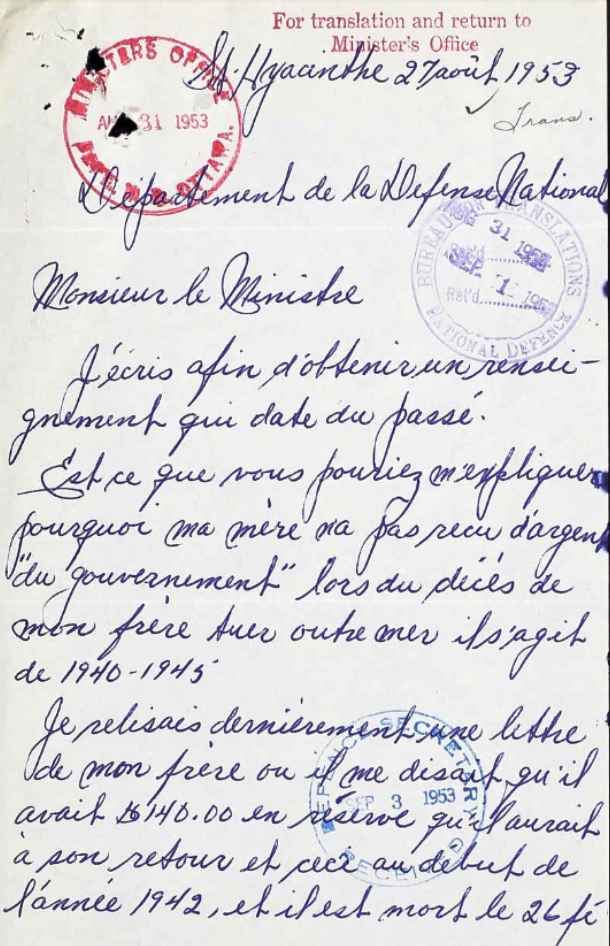 For translation and return to
Minister's Office
MINISTERS OFFICE
AUG 31 1953
OTTAWA.
St. Hyacinthe 27 août 1953
Trans.
Département de la Defense National
BUREAU FOR TRANSLATIONS
AUG 31 1953
Rec'd
SEP 1 1953
Ret'd
NATIONAL DEFENCE
Monsieur le Ministre
J'écris afin d'obtenir un rensei-
gnement qui date du passé.
Est ce que vous pouriez m'expliquer
pourquoi ma mère na pas recu d'argen
"du gouvernement" lors du décès de
mon frère tuer outre mer il s'agit
de 1940-1945
Je relisais dernièrement une lettre
de mon frère ou il me disait qu'il
avait $140.00 en réserve qu'il aurait
à son retour et ceci au début de
l'année 1942, et il est mort le 26 fé
DEFENCE SECRETARY
SEP 3 1953
RECEIVED